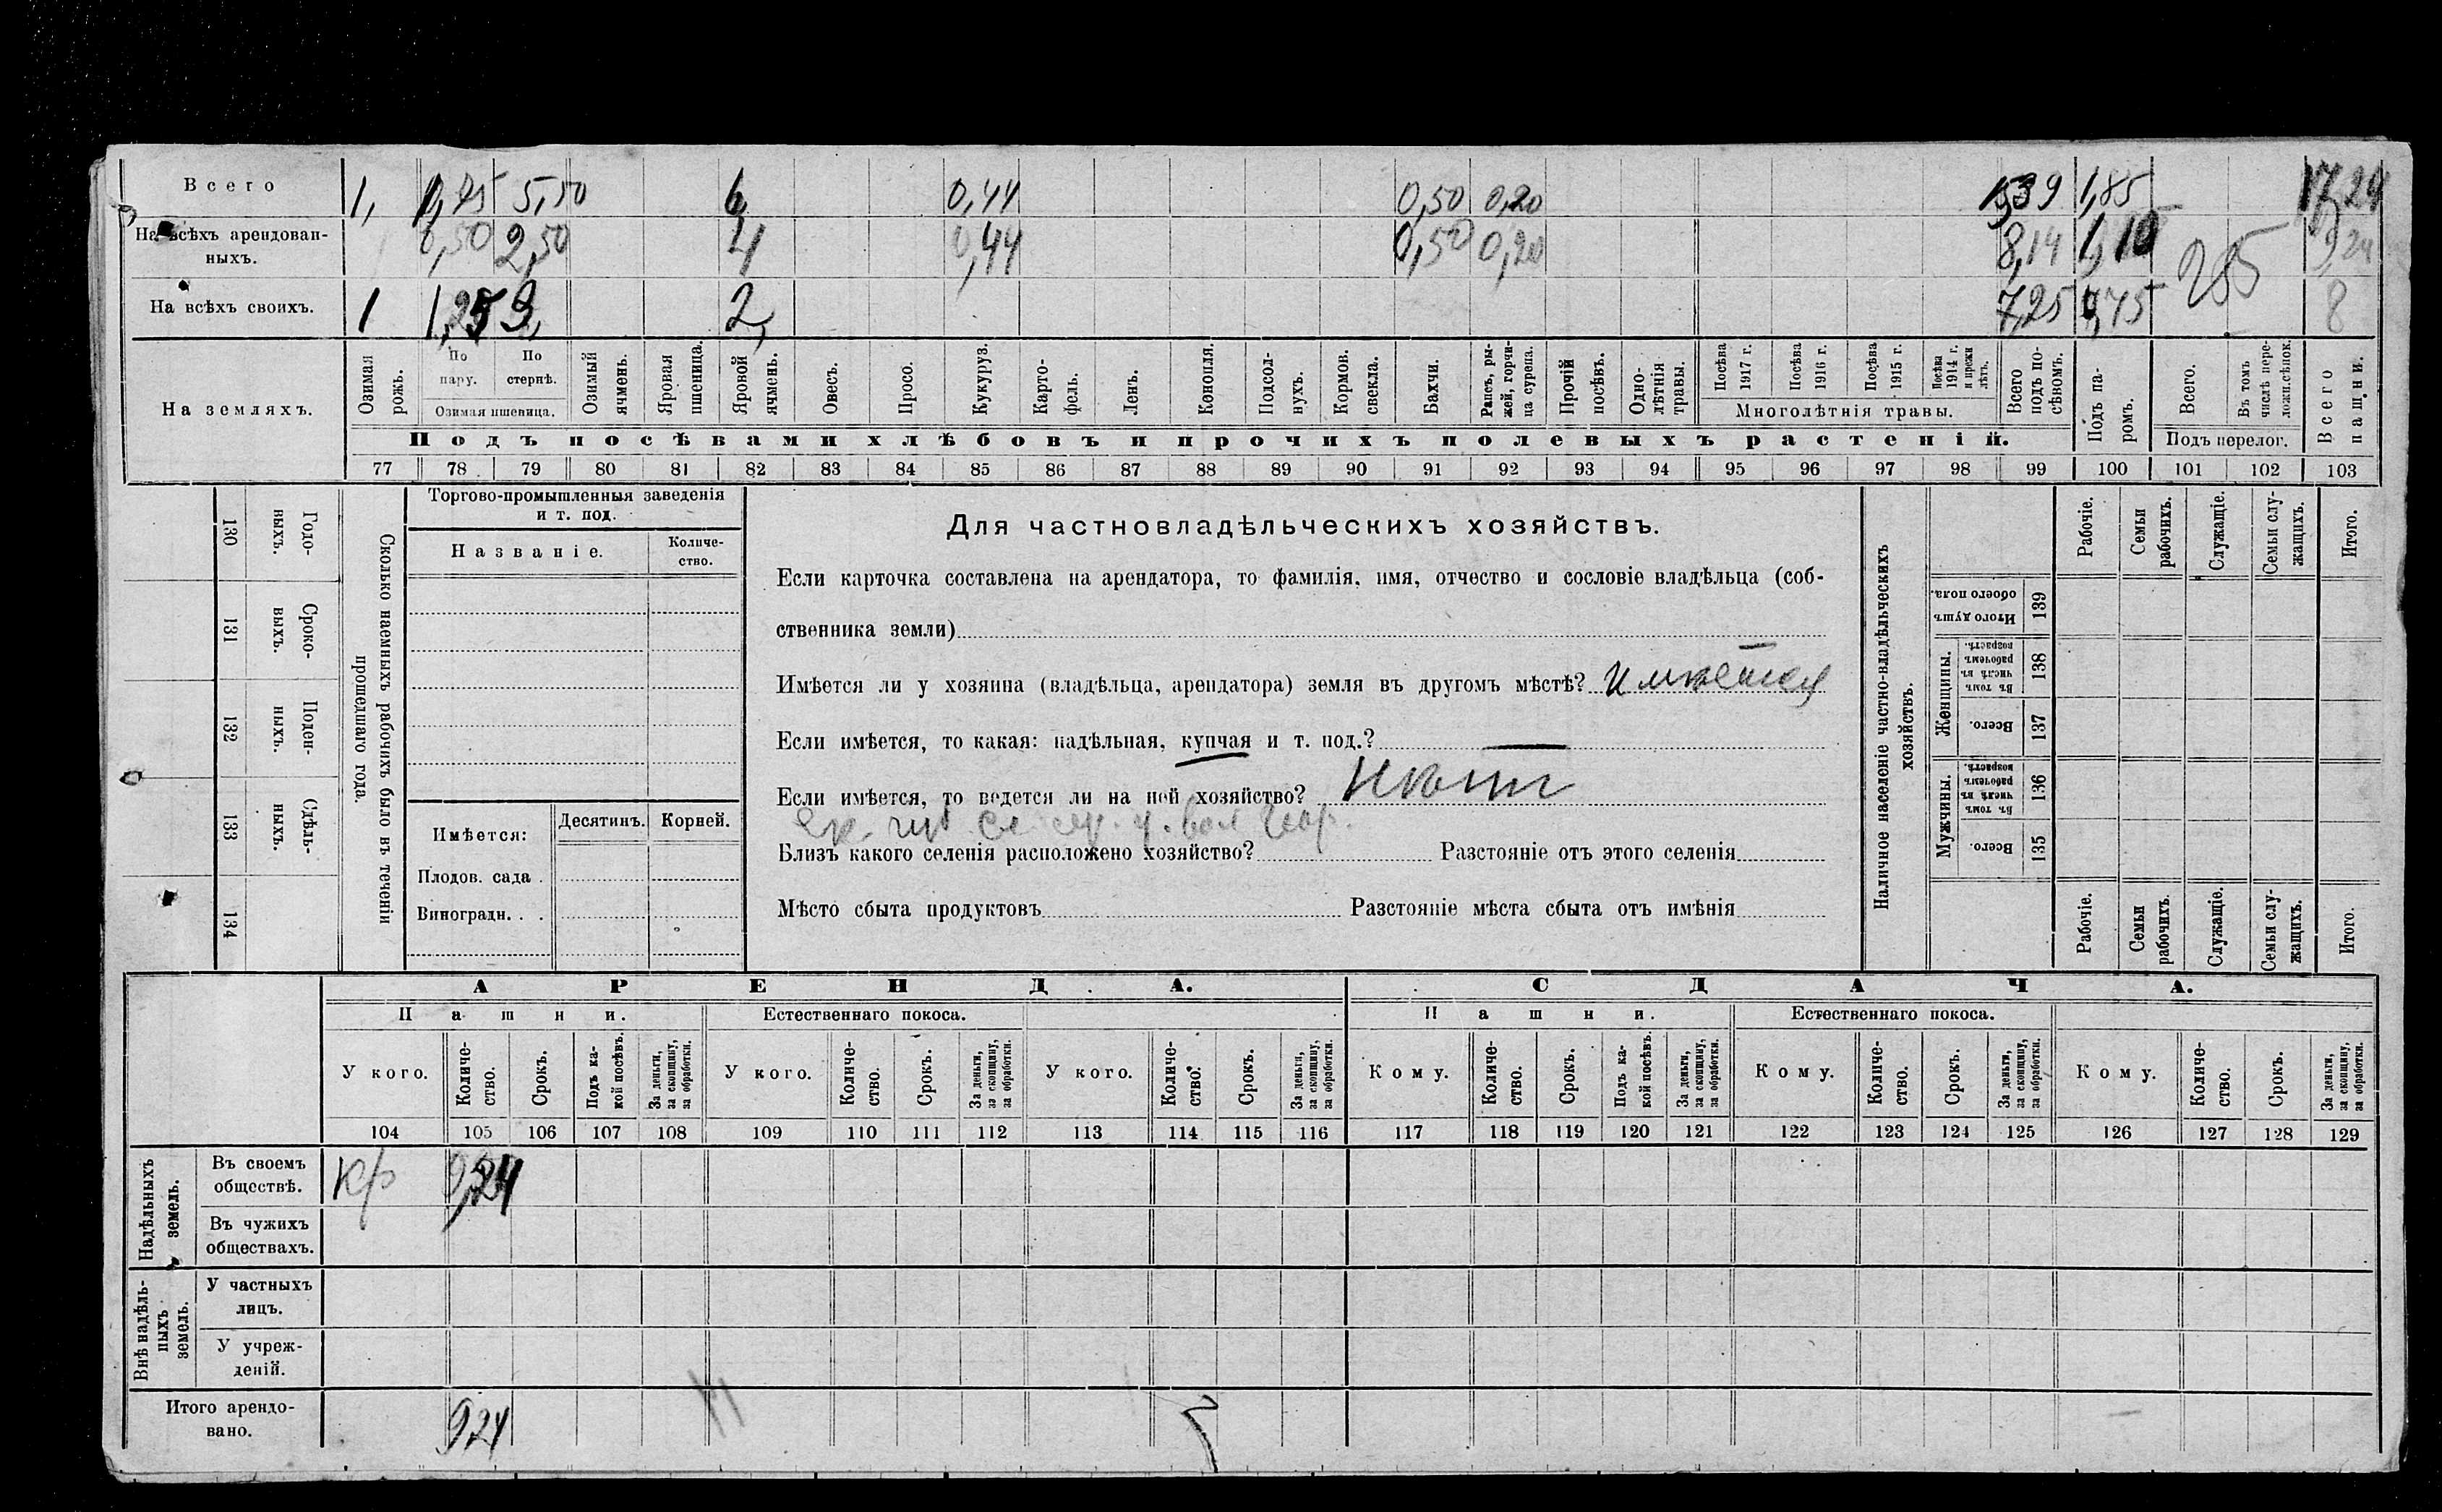 Всего 1, 1,75 5,50 6, 0,44 0,50 0,20 1539 1,85 17,24
На всѣхъ арендован-
ныхъ. 0,50 2,50 4 0,44 0,50 0,20 8,14 1,10 9,24
На всѣхъ своихъ. 1 1,25 3, 2, 7,25 0,75 8
На земляхъ.
Озимая рожь.
По пару.
По стернѣ.
Озимая пшеница.
Озимый ячмень.
Яровая пшеница.
Яровой ячмень.
Овесъ.
Просо.
Кукуруз.
Карто-
фель.
Ленъ.
Конопля.
Подсол-
нухъ.
Кормов.
свекла.
Бахчи.
Рапсъ, ры-
жей, горчи-
ца сурепа.
Прочій
посѣвъ.
Одно-
лѣтнія
травы.
Посѣва
1917 г.
Посѣва
1916 г.
Посѣва
1915 г.
Посѣва
1914 г.
и прежн
лѣтъ.
Многолѣтнія травы.
Всего
подъ по-
сѣвомъ.
Подъ па-
ромъ.
Всего.
Въ томъ
числѣ пере-
ложн.сѣнок.
Подъ перелог.
Всего
пашни.
Подъ посѣвами хлѣбовъ и прочихъ полевыхъ растеній.
77 78 79 80 81 82 83 84 85 86 87 88 89 90 91 92 93 94 95 96 97 98 99 100 101 102 103
130 Годо-
выхъ.
131 Сроко-
выхъ.
132 Поден-
ныхъ.
133 Сдѣль-
ныхъ.
134
Сколько наемныхъ рабочихъ было въ теченіи
прошедшаго года.
Торгово-промышленныя заведенія
и т. под.
Названіе.
Количе-
ство.
Имѣется:
Десятинъ.
Корней.
Плодов. сада .
Виноградн. . .
Для частновладѣльческихъ хозяйствъ.
Если карточка составлена на арендатора, то фамилія, имя, отчество и сословіе владѣльца (соб-
ственника земли)
Имѣется ли у хозяина (владѣльца, арендатора) земля въ другомъ мѣстѣ? имѣется
Если имѣется, то какая: надѣльная, купчая и т. под.? —
Если имѣется, то ведется ли на ней хозяйство? Нѣтъ
Близъ какого селенія расположено хозяйство? Разстояніе отъ этого селенія
Мѣсто сбыта продуктовъ Разстояніе мѣста сбыта отъ имѣнія
Наличное населеніе частно-владѣльческихъ
хозяйствъ.
Рабочіе.
Семьи
рабочихъ.
Служащіе.
Семьи слу-
жащихъ.
Итого.
Итого душъ
обоего пола.
139
Женщины.
Въ томъ
числѣ въ
рабочемъ
возрастѣ.
138
Всего.
137
Мужчины.
Въ томъ
числѣ въ
рабочемъ
возрастѣ.
136
Всего.
135
Рабочіе.
Семьи
рабочихъ.
Служащіе.
Семьи слу-
жащихъ.
Итого.
АРЕНДА. СДАЧА.
Пашни. Естественнаго покоса. Пашни. Естественнаго покоса.
У кого.
Количе-
ство.
Срокъ.
Подъ ка-
кой посѣвъ.
За деньги,
за скопщину,
за обработки.
У кого.
Количе-
ство.
Срокъ.
За деньги,
за скопщину,
за обработки.
У кого.
Количе-
ство.
Срокъ.
За деньги,
за скопщину,
за обработки.
Кому.
Количе-
ство.
Срокъ.
Подъ ка-
кой посѣвъ.
За деньги,
за скопщину,
за обработки.
Кому.
Количе-
ство.
Срокъ.
За деньги,
за скопщину,
за обработки.
Кому.
Количе-
ство.
Срокъ.
За деньги,
за скопщину,
за обработки.
104 105 106 107 108 109 110 111 112 113 114 115 116 117 118 119 120 121 122 123 124 125 126 127 128 129
Надѣльныхъ
земель.
Въ своемъ
обществѣ. кр 9,24
Въ чужихъ
обществахъ.
Внѣ надѣль-
ныхъ
земель.
У частныхъ
лицъ.
У учреж-
деній.
Итого арендо-
вано. 924